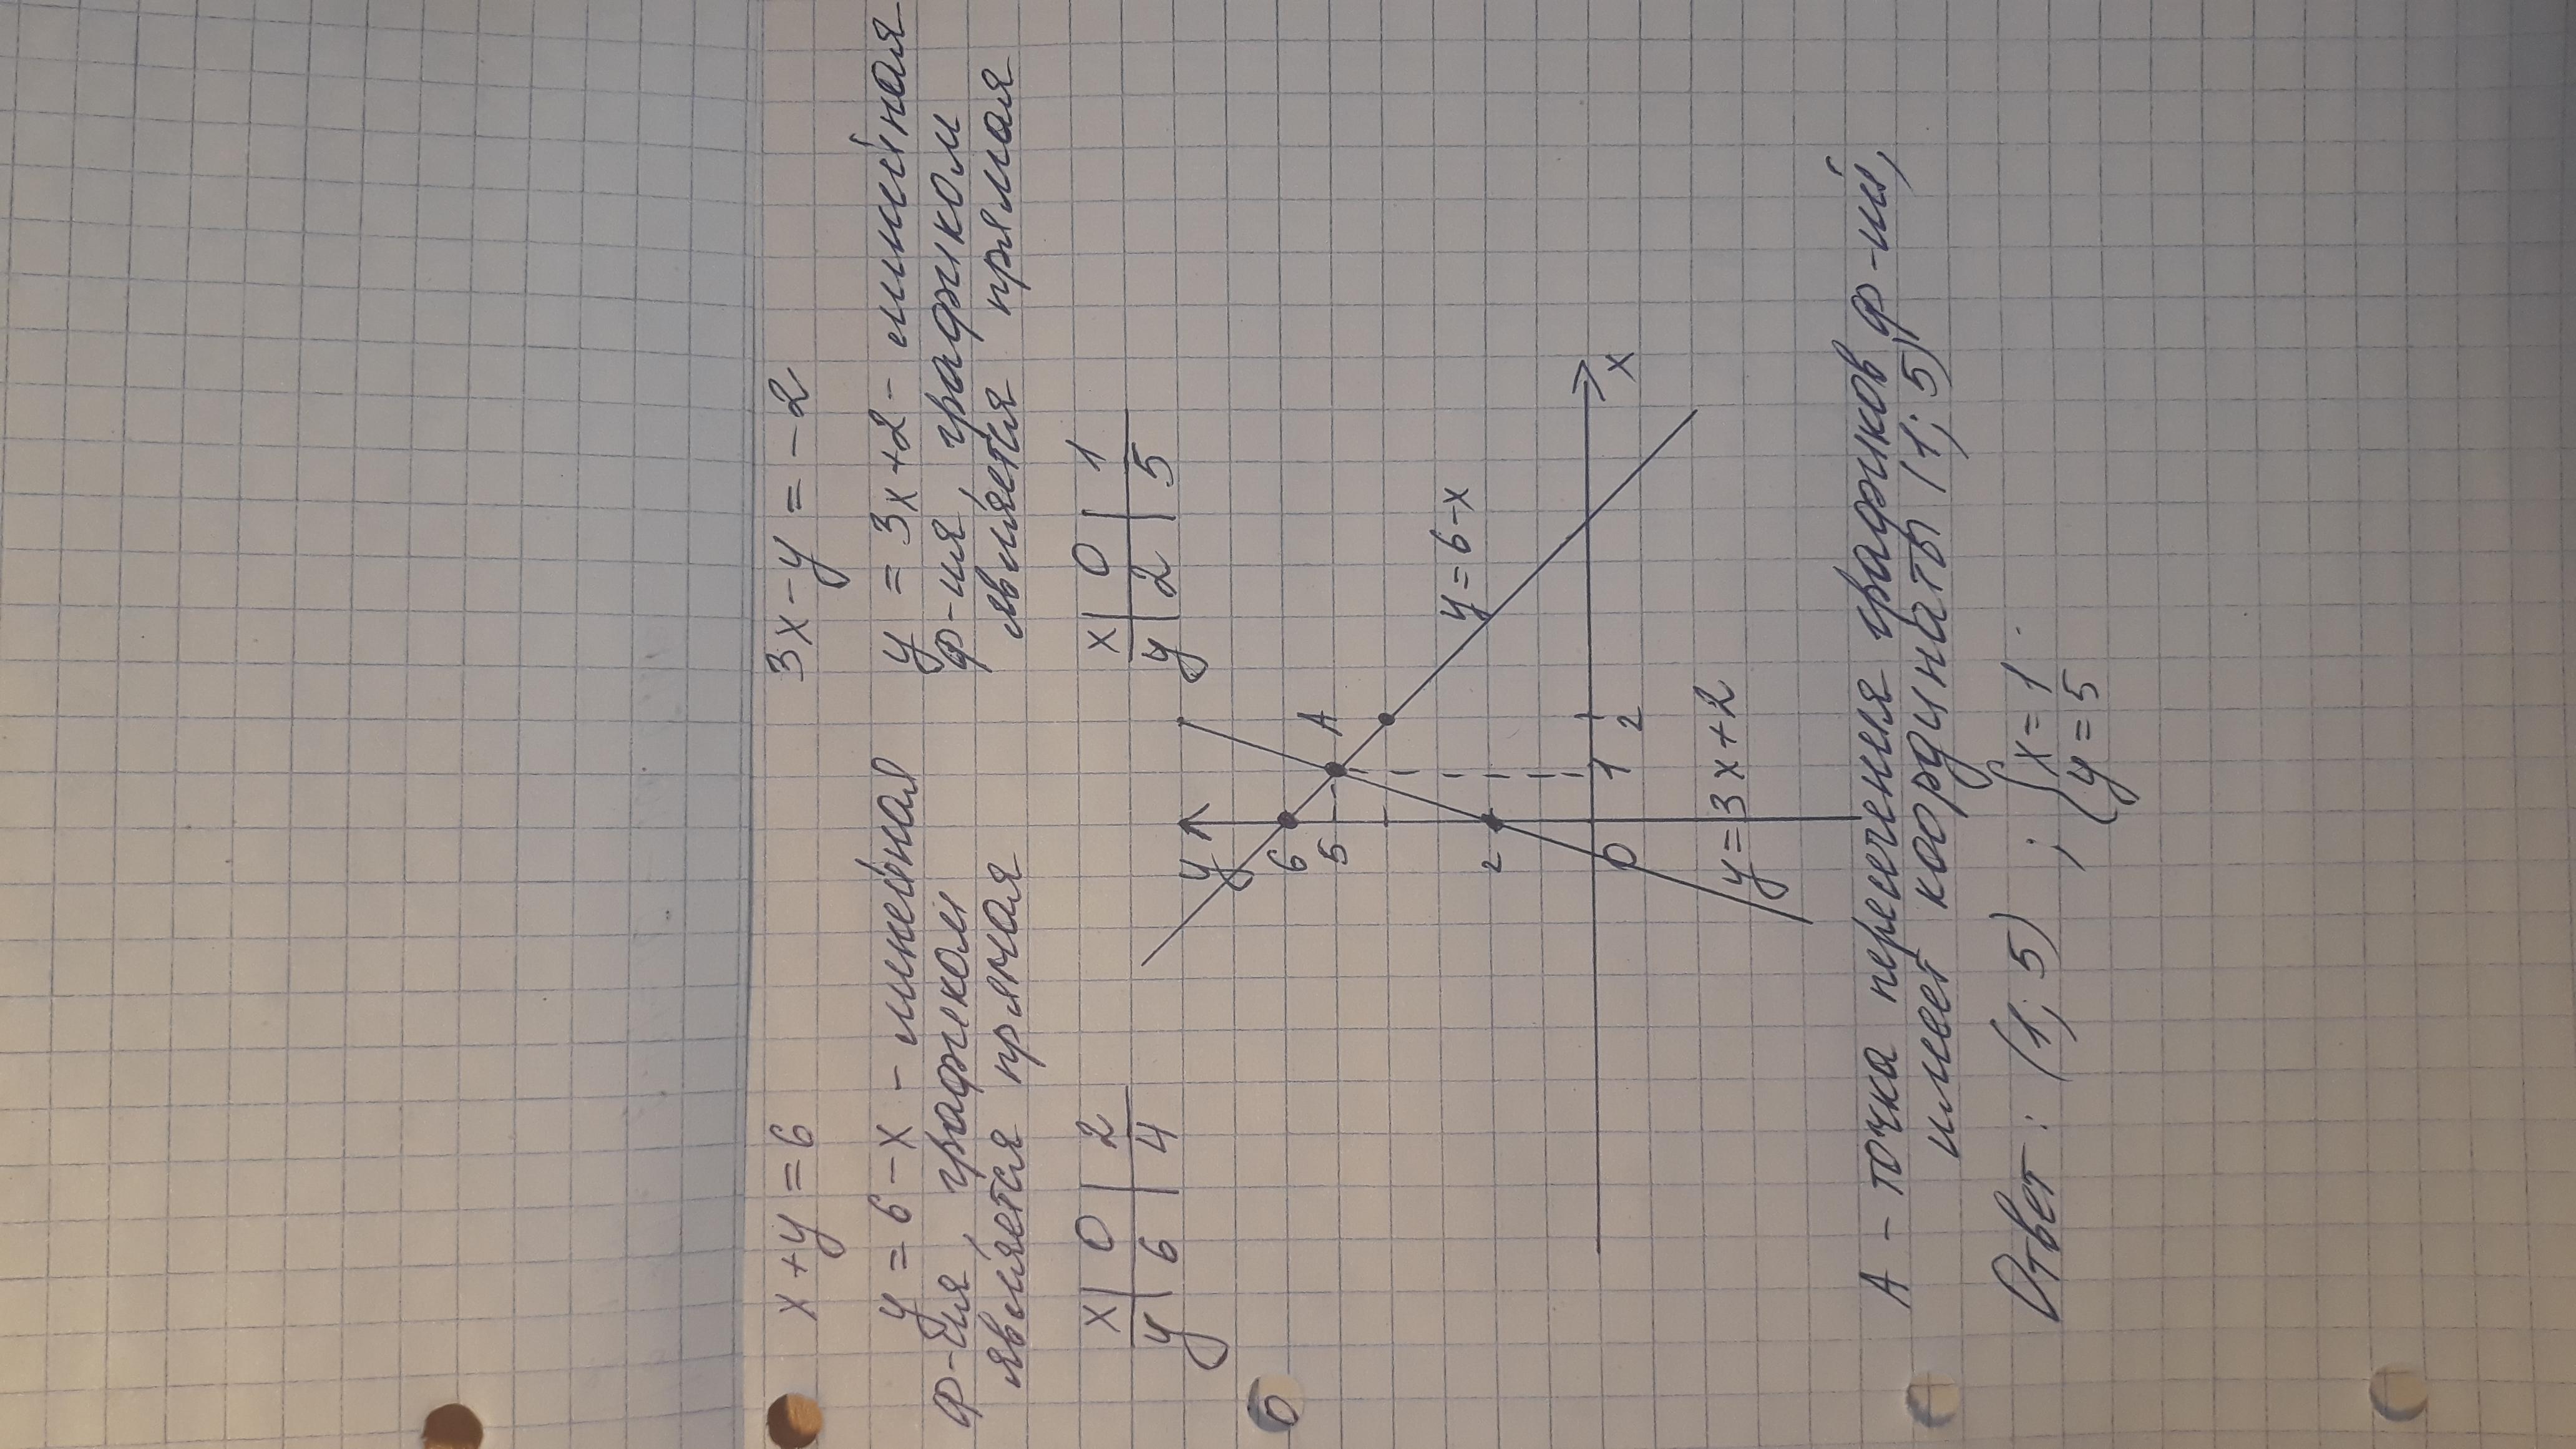 x+y=6 3x-y=-2
y=6-x - линейная y=3x+2 - линейная
ф-ия, графиком ф-ия, графиком
является прямая является прямая
x | 0 | 2 x | 0 | 1
y | 6 | 4 y | 2 | 5
y
6
5
A
2
y=6-x
0
1
2
x
y=3x+2
A - точка пересечения графиков ф-ий,
имеет координаты (1; 5)
Ответ: (1; 5) ; { x=1
y=5